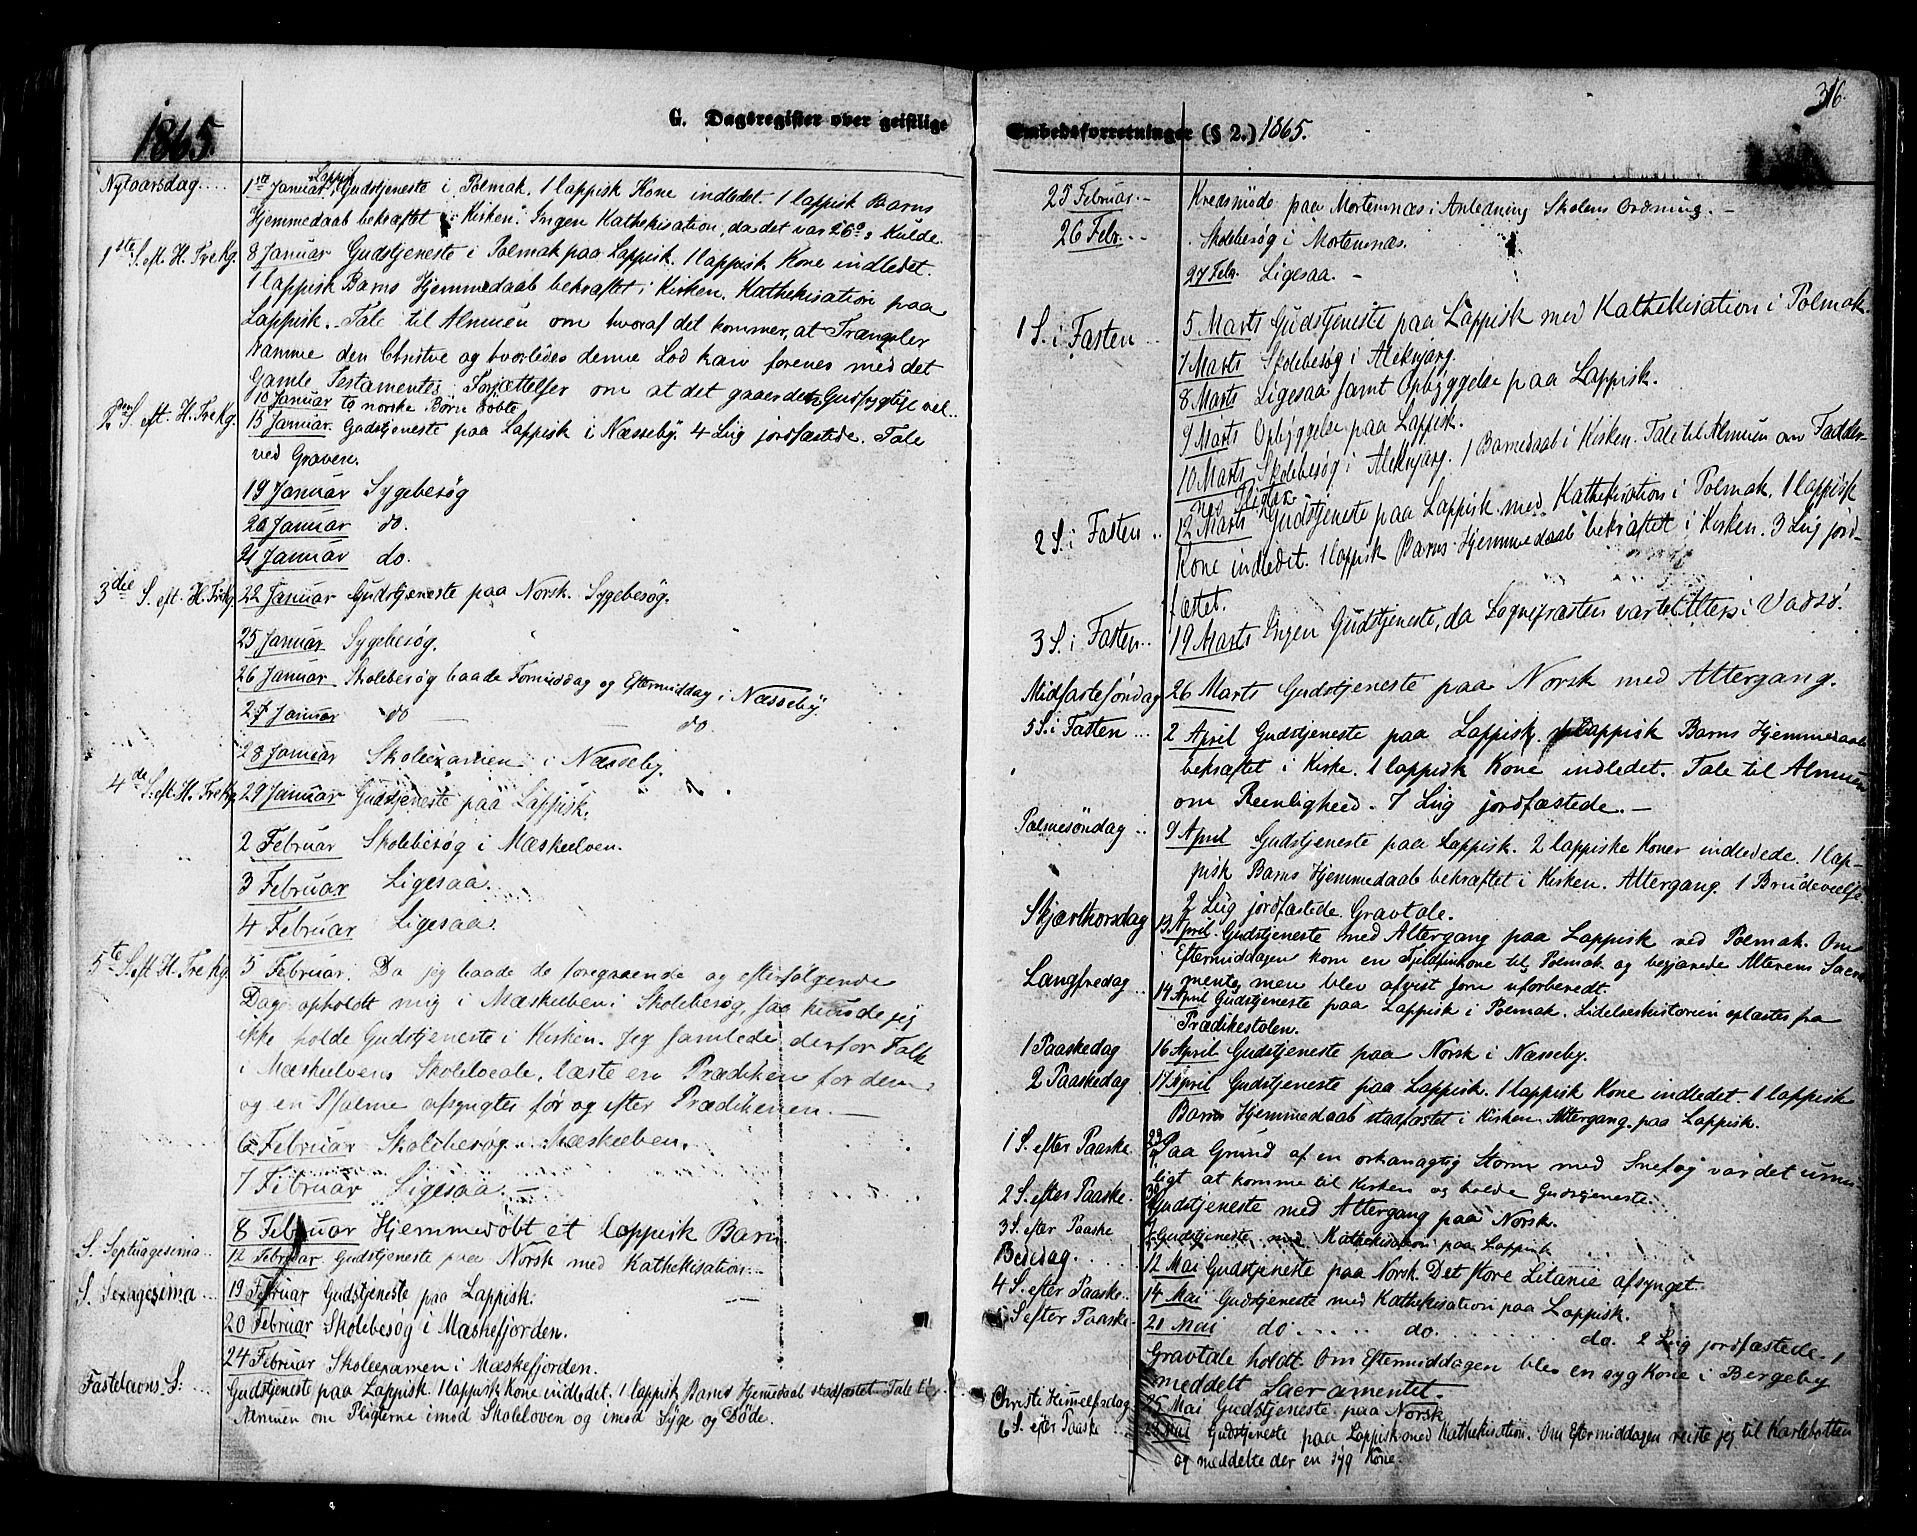 G. Dagsregister over geistlige
1865.
Nytaarsdag.... 1ste Januar Lappisk Gudstjeneste i Polmak. 1 lappisk Kone indledet. 1 lappisk Barns
Hjemmedaab bekræftet i Kirken. Ingen Kathekisation, da det var 26° Kulde.
1ste S. eft. H. Tre Kg. 8 Januar Gudstjeneste i Polmak paa Lappisk. 1 lappisk Kone indledet.
1 lappisk Barns Hjemmedaab bekræftet i Kirken. Kathekisation paa
Lappisk. Tale til Almuen om hvoraf det kommer, at Trængsler
ramme den Christne og hvorledes denne Lod kan forenes med det
Gamle Testamentes Forjættelser om at det gaaer de Gudfrygtige vel..
10 Januar to norske Børn døbte
2den S. eft. H. Tre Kg. 15 Januar. Gudstjeneste paa Lappisk i Næsseby. 4 Liig jordfæstede. Tale
ved Graven.
19 Januar Sygebesøg
20 Januar do.
21 Januar do.
3die S. eft. H. Tre Kg. 22 Januar Gudstjeneste paa Norsk. Sygebesøg.
25 Januar Sygebesøg.
26 Januar Skolebesøg baade Formiddag og Eftermiddag i Næsseby.
27 Januar do — — do
28 Januar Skoleexamen i Næsseby.
4de S. eft. H. Tre Kg. 29 Januar Gudstjeneste paa Lappisk.
2 Februar Skolebesøg i Mæskelven.
3 Februar Ligesaa.
4 Februar Ligesaa.
5te S. eft. H. Tre Kg. 5 Februar. Da jeg baade de foregaaende og efterfølgende
Dag opholdt mig i Mæskelven i Skolebesøg, saa kunde jeg
ikke holde Gudstjeneste i Kirken. Jeg samlede derfor Folk
i Mæskelvens Skolelocale, læste en Prædiken for dem
og en Psalme afsynges før og efter Prædikenen. —
6 Februar Skolebesøg i Mæskelven.
7 Februar Ligesaa. —
8 Februar Hjemmedøbt et lappisk Barn
S. Septuagesima 12 Februar Gudstjeneste paa Norsk med Kathekisation...
S. Sexagesima ... 19 Februar Gudstjeneste paa Lappisk.
20 Februar Skolebesøg i Mæskefjorden.
24 Februar Skoleexamen i Mæskefjorden.
Fastelavns S: ... Gudstjeneste paa Lappisk. 1 lappisk Kone indledet. 1 lappisk Barns Hjemmedaab stadfæstet. Tale til
Almuen om Pligterne imod Skoleloven og imod Syge og Døde.
316.
Embedsforretninger (§ 2.) 1865.
25 Februar. – Kredsmøde paa Mortensnæs i Anledning Skolens Ordning. –
26 Febr. .. Skolebesøg i Mortensnæs.
27 Febr. Ligesaa. –
1 S. i Fasten .. 5 Marts Gudstjeneste paa Lappisk med Kathekisation i Polmak.
7 Marts Skolebesøg i Aleknjarg.
8 Marts Ligesaa samt Opbyggelse paa Lappisk.
9 Marts Opbyggelse paa Lappisk.
10 Marts Skolebesøg i Aleknjarg. 1 Barnedaab i Kirken. Tale til Almuen om Fadder-
nes Pligter.
2 S. i Fasten .. 12 Marts Gudstjeneste paa Lappisk med Kathekisation i Polmak. 1 lappisk
Kone indledet. 1 lappisk Barns Hjemmedaab bekræftet i Kirken. 3 Liig jord-
fæstet.
3 S. i Fasten.. 19 Marts Ingen Gudstjeneste, da Sognepræsten var til Alters i Vadsø.
Midfastesøndag 26 Marts Gudstjeneste paa Norsk med Altergang.
5 S. i Fasten ... 2 April Gudstjeneste paa Lappisk. 1 Lappisk Barns Hjemmedaab
bekræftet i Kirke. 1 lappisk Kone indledet. Tale til Almuen
om Reenlighed. 7 Liig jordfæstede. —
Palmesöndag .. 9 April Gudstjeneste paa Lappisk. 2 lappiske Koner indledede. 1 lap-
pisk Barns Hjemmedaab bekræftet i Kirken. Altergang. 1 Brudevielse
2 Liig jordfæstede. Gravtale.
Skjærthorsdag 13 April. Gudstjeneste med Altergang paa Lappisk ved Polmak. Om
Eftermiddagen kom en Fjeldfinkone til Polmak og begjærede Alterens Sacra-
mente, men blev afvist som uforberedt.
Langfredag .. 14 April Gudstjeneste paa Lappisk i Polmak. Lidelseshistorien oplæstes fra
Prædikestolen.
1 Paaskedag 16 April Gudstjeneste paa Norsk i Næsseby.
2 Paaskedag 17 April Gudstjeneste paa Lappisk. 1 lappisk Kone indledet. 1 lappisk
Barns Hjemmedaab stadfæstet i Kirken. Altergang paa Lappisk.
1 S. efter Paaske. 23/4 Paa Grund af en orkanagtig Storm med Snefog var det umu-
ligt at komme til Kirken og holde Gudstjeneste.
2 S. efter Paaske. 30/4 Gudstjeneste med Altergang paa Norsk.
3 S. efter Paaske Gudstjeneste med Kathekisation paa Lappisk
Bededag.... 12 Mai Gudstjeneste paa Norsk. Det store Litanie afsynget.
4 S. efter Paaske.. 14 Mai Gudstjeneste med Kathekisation paa Lappisk.
5 S efter Paaske.. 21 Mai do..... do....... do. 2 Liig jordfæstede. 1
Gravtale holdt. Om Eftermiddagen blev en syg Kone i Bergeby
meddelt Sacramentet.
Christi Himmelfsdag 25 Mai Gudstjeneste paa Norsk
6 S. efter Paaske .. 28 Mai Gudstjeneste paa Lappisk med Kathekisation. Om Eftermiddagen reiste jeg til Karlebotten
og meddelte der en syg Kone.